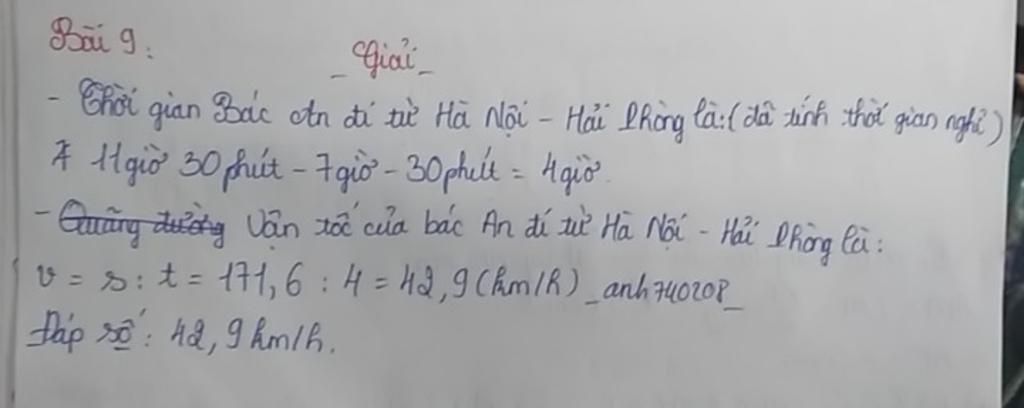 Bài 9:
_ Giải _
- Thời gian Bác An đi từ Hà Nội - Hải Phòng là: (đã tính thời gian nghỉ)
11 giờ 30 phút - 7 giờ - 30 phút = 4 giờ.
- Quãng đường Vận tốc của bác An đi từ Hà Nội - Hải Phòng là:
v = s : t = 171,6 : 4 = 42,9 (km/h) _anh740208_
Đáp số: 42,9 km/h.